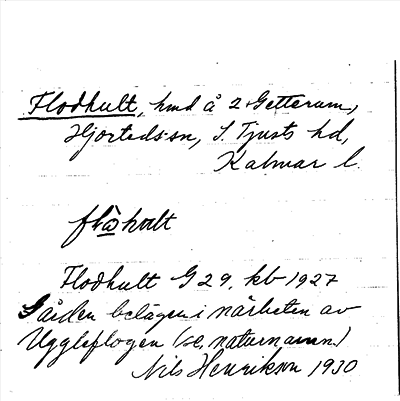 Flodhult, hmd å 2 Getterum,
Hjorteds sn, S. Tjusts hd,
Kalmar l.
flå̀hʊlt
Flodhult G 29, kb 1927
Gården belägen i närheten av
Uggleflogen (se, naturnamn)
Nils Henrikson 1930